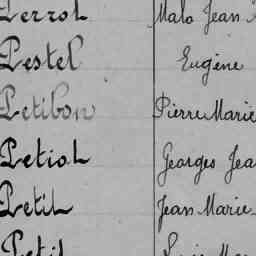 Perrol Malo Jean
Pestel Eugène
Petibon Pierre Marie
Petiol Georges Jea
Petit Jean Marie
Petit